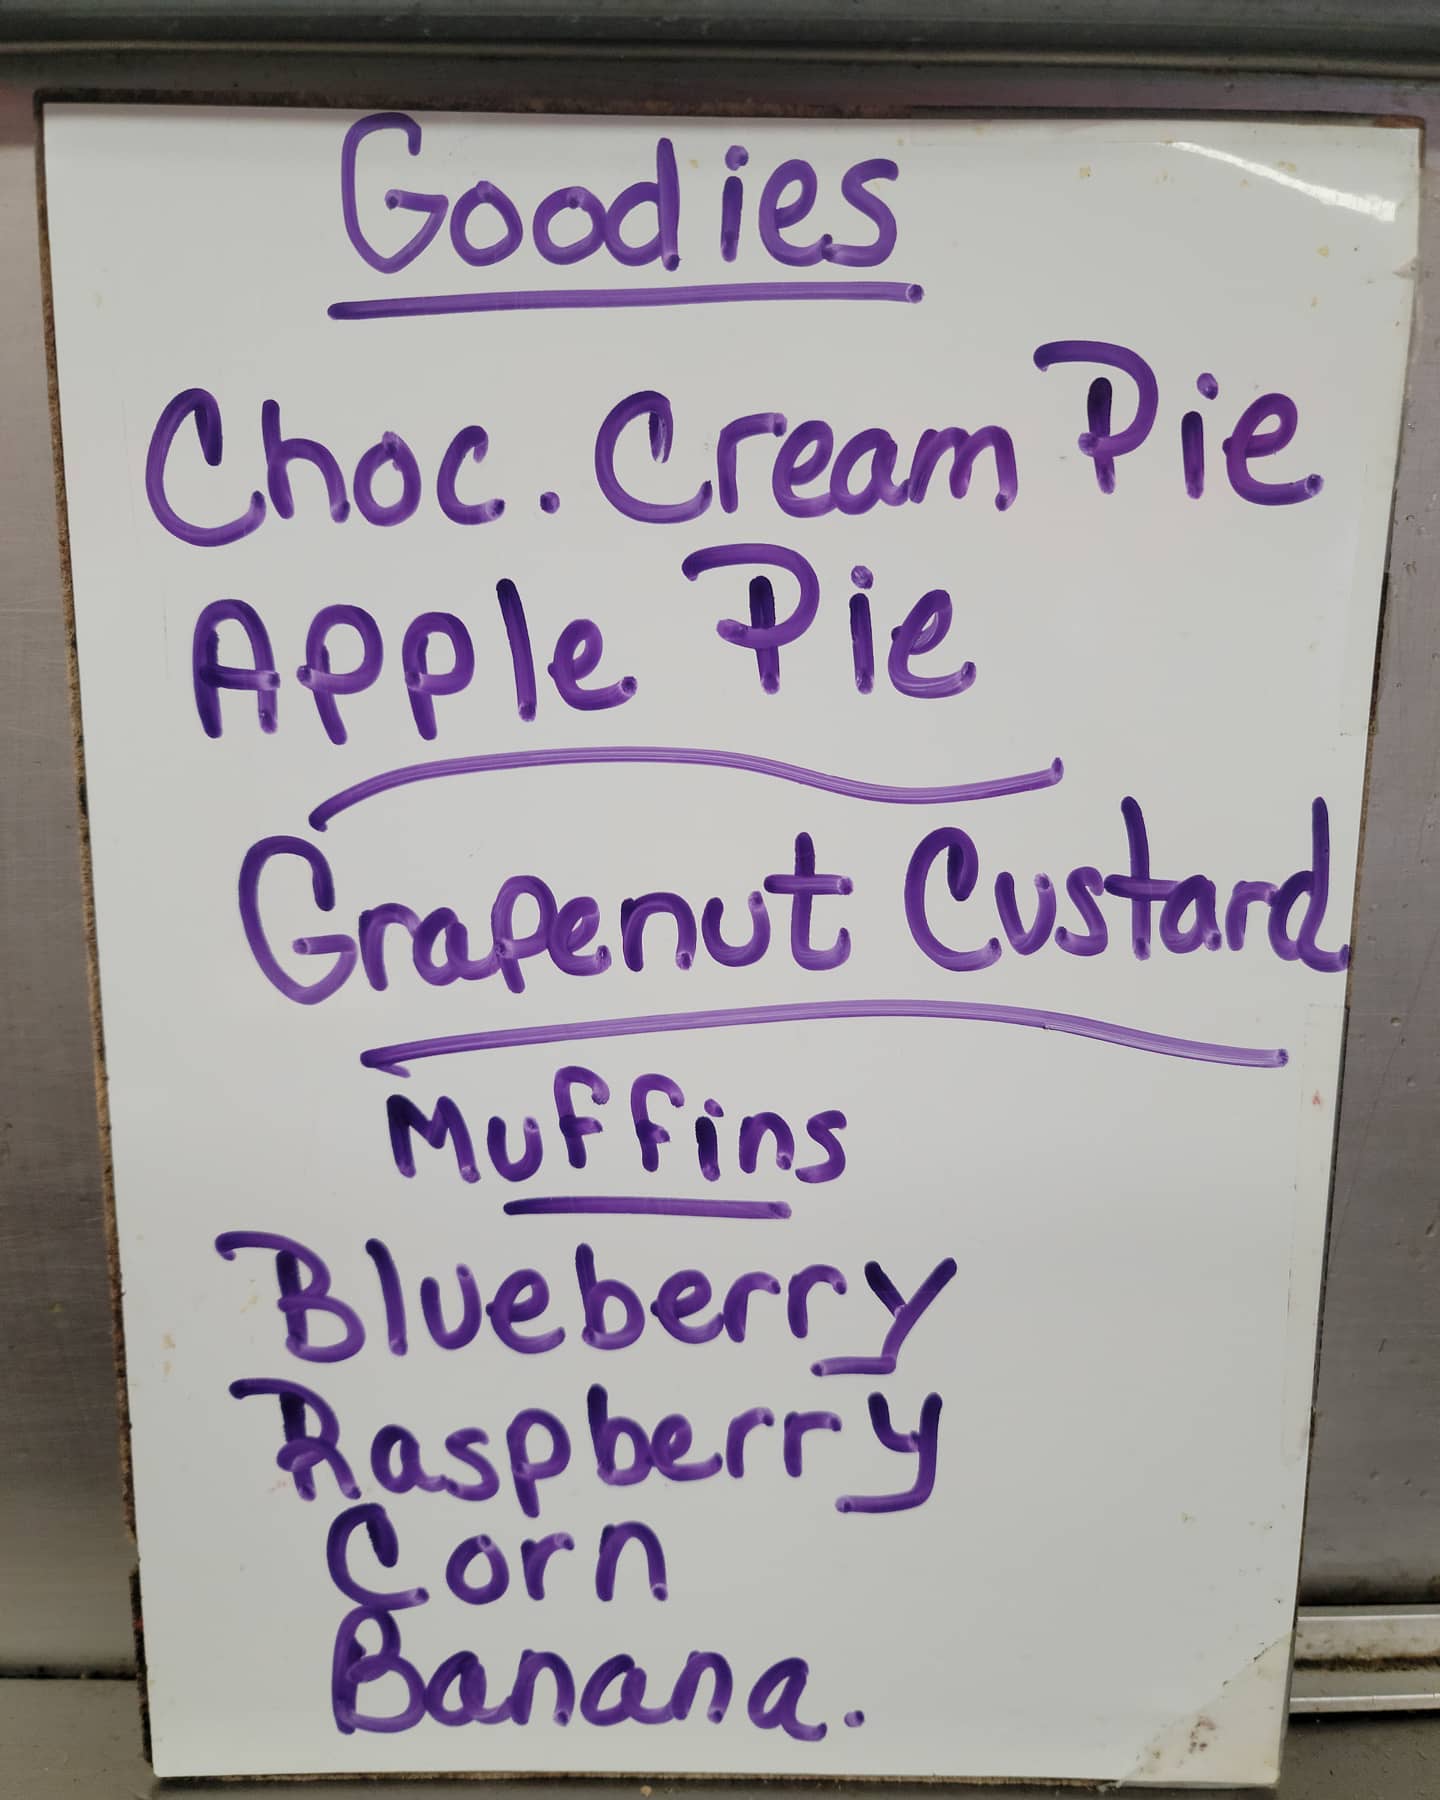 Goodies
Choc. Cream Pie
Apple Pie
Grapenut Custard
Muffins
Blueberry
Raspberry
Corn
Banana.